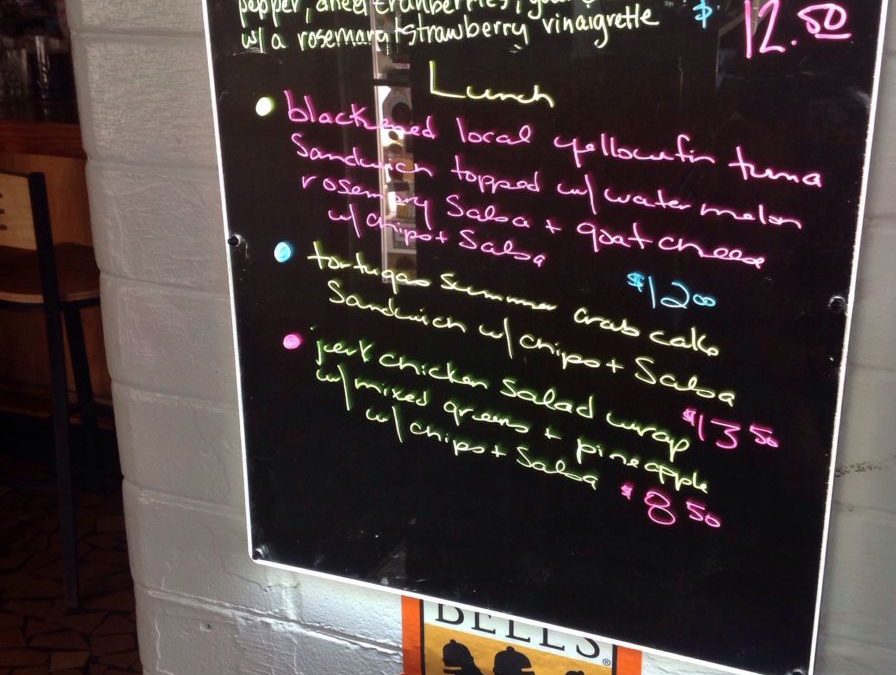 pepper, dried cranberries,
w/ a rosemary strawberry vinaigrette
$ 12.50
Lunch
blackened local yellowfin tuna
Sandwich topped w/ watermelon
rosemary Salsa + goat cheese
w/ chips + Salsa
$12 00
tortugas summer crab cake
Sandwich w/ chips + Salsa
$13 50
jerk chicken Salad wrap
w/ mixed greens + pineapple
w/ chips + Salsa
$8 50
BELL'S®